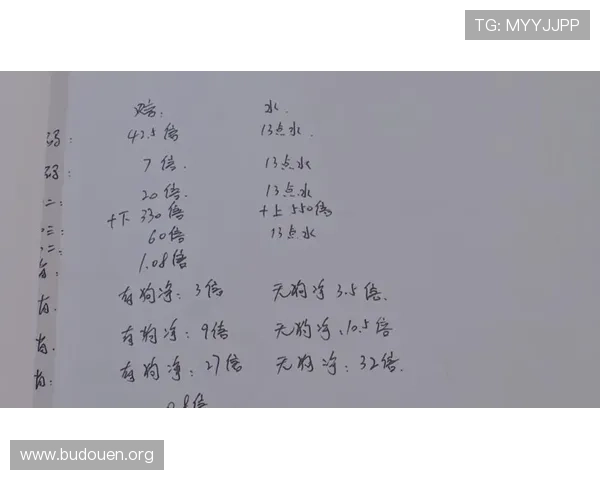 TG: MYYJJPP
赔: 水.
码: 42.5倍 13点水.
码: 7倍. 13点水
二: 20倍. 13点水
十下 330倍 十上 550倍
三: 60倍 13点水
二: 1.08倍
有. 有狗净: 3倍 无狗净 3.5倍.
有. 有狗净: 9倍 无狗净、10.5倍
有: 有狗净: 27倍 无狗净: 32倍.
www.budouen.org